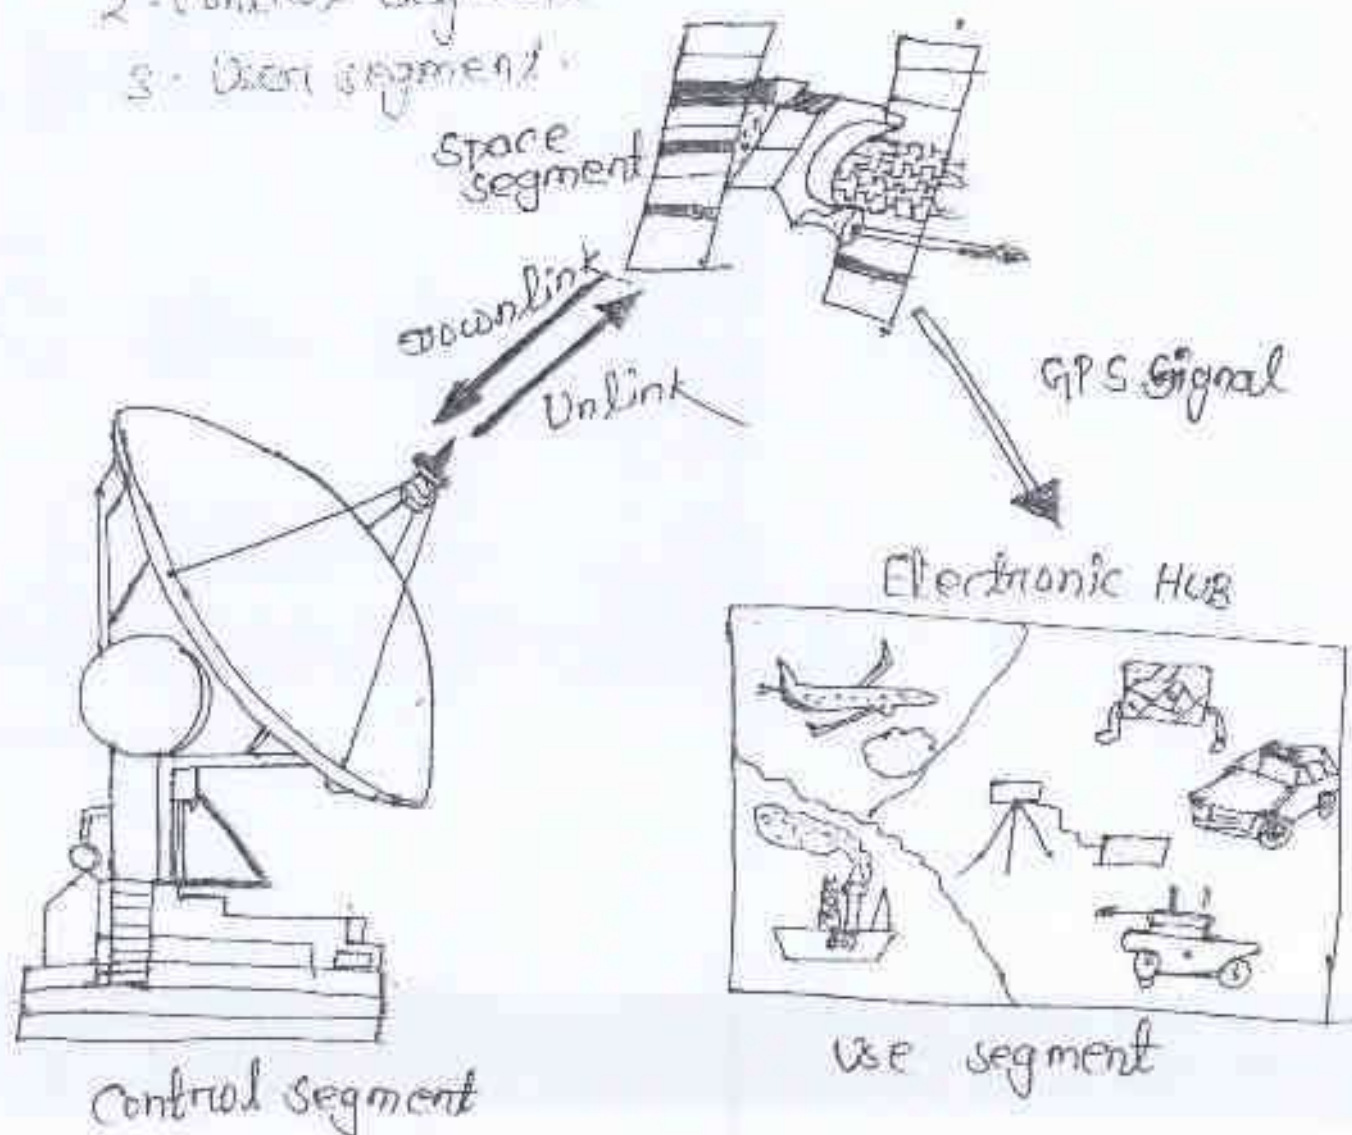 2. Control segment
3. User segment.
Space
segment
Downlink
Unlink
GPS Signal
Electronic HUB
Use segment
Control segment